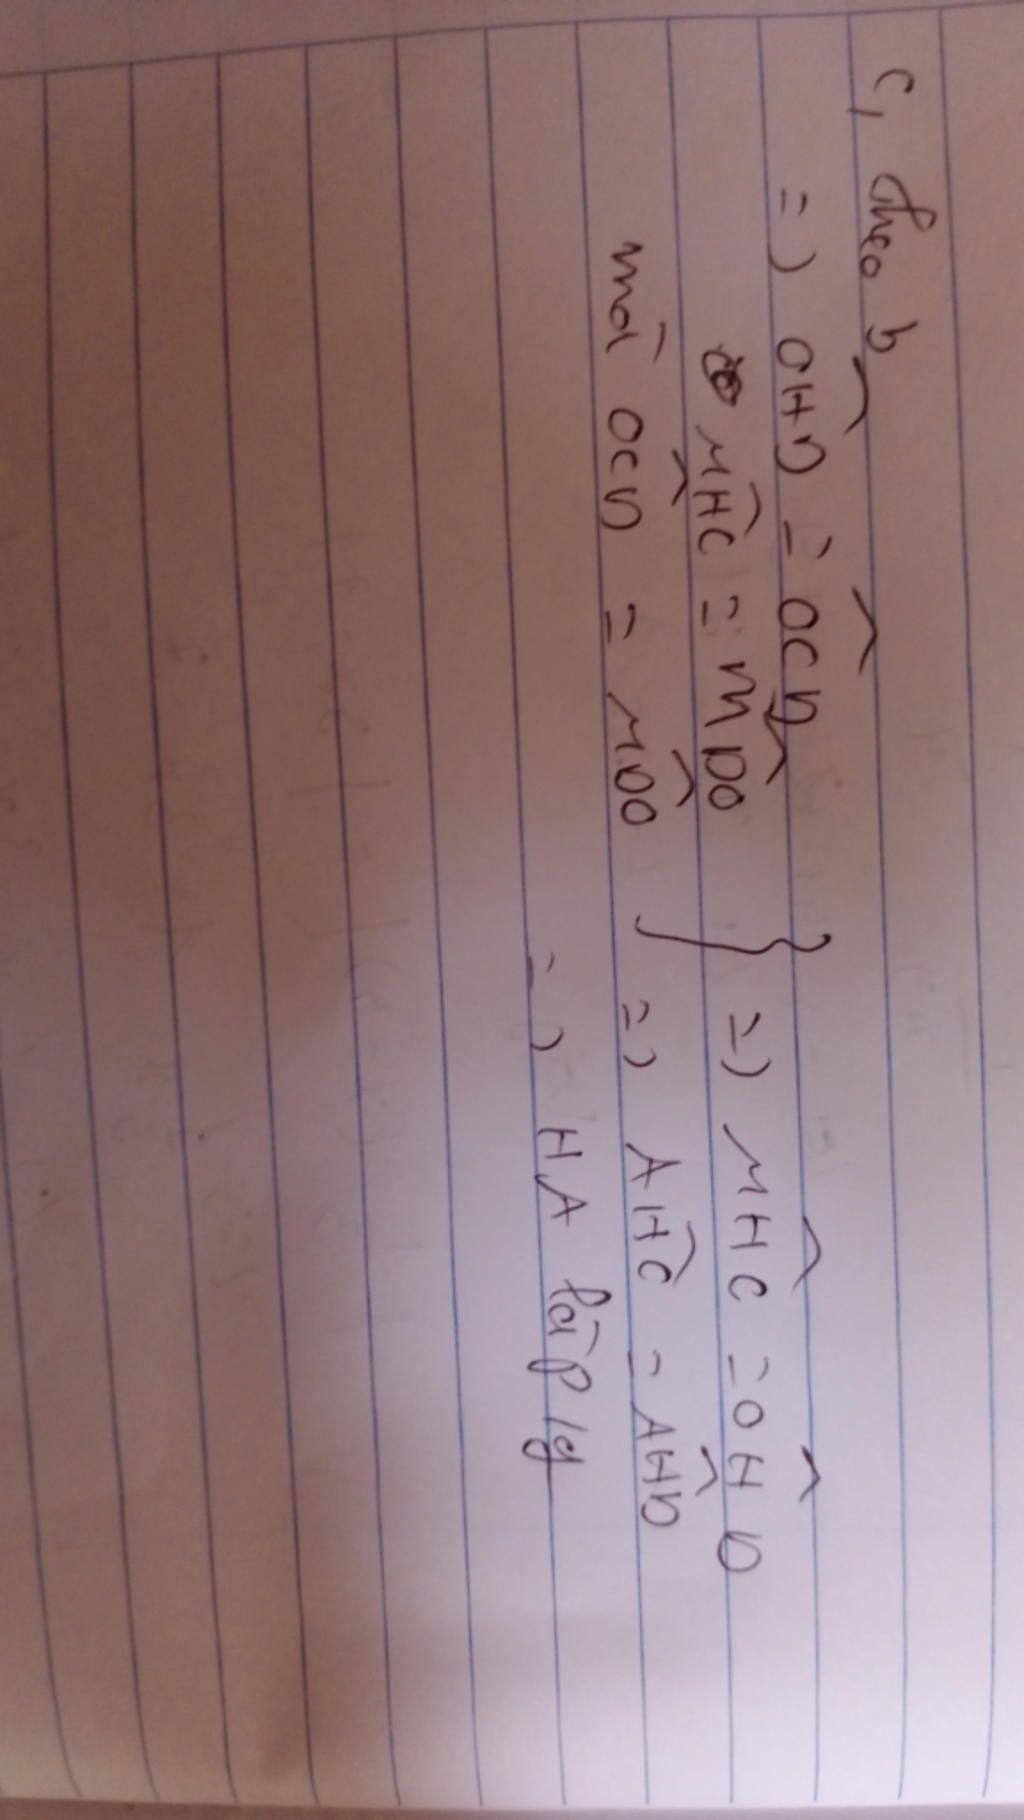 c, Theo b
=) OHD = OCD
MHC = MDO } =) MHC = OHD
mà OCD = MDO =) AHC = AHD
=) HA là p/g